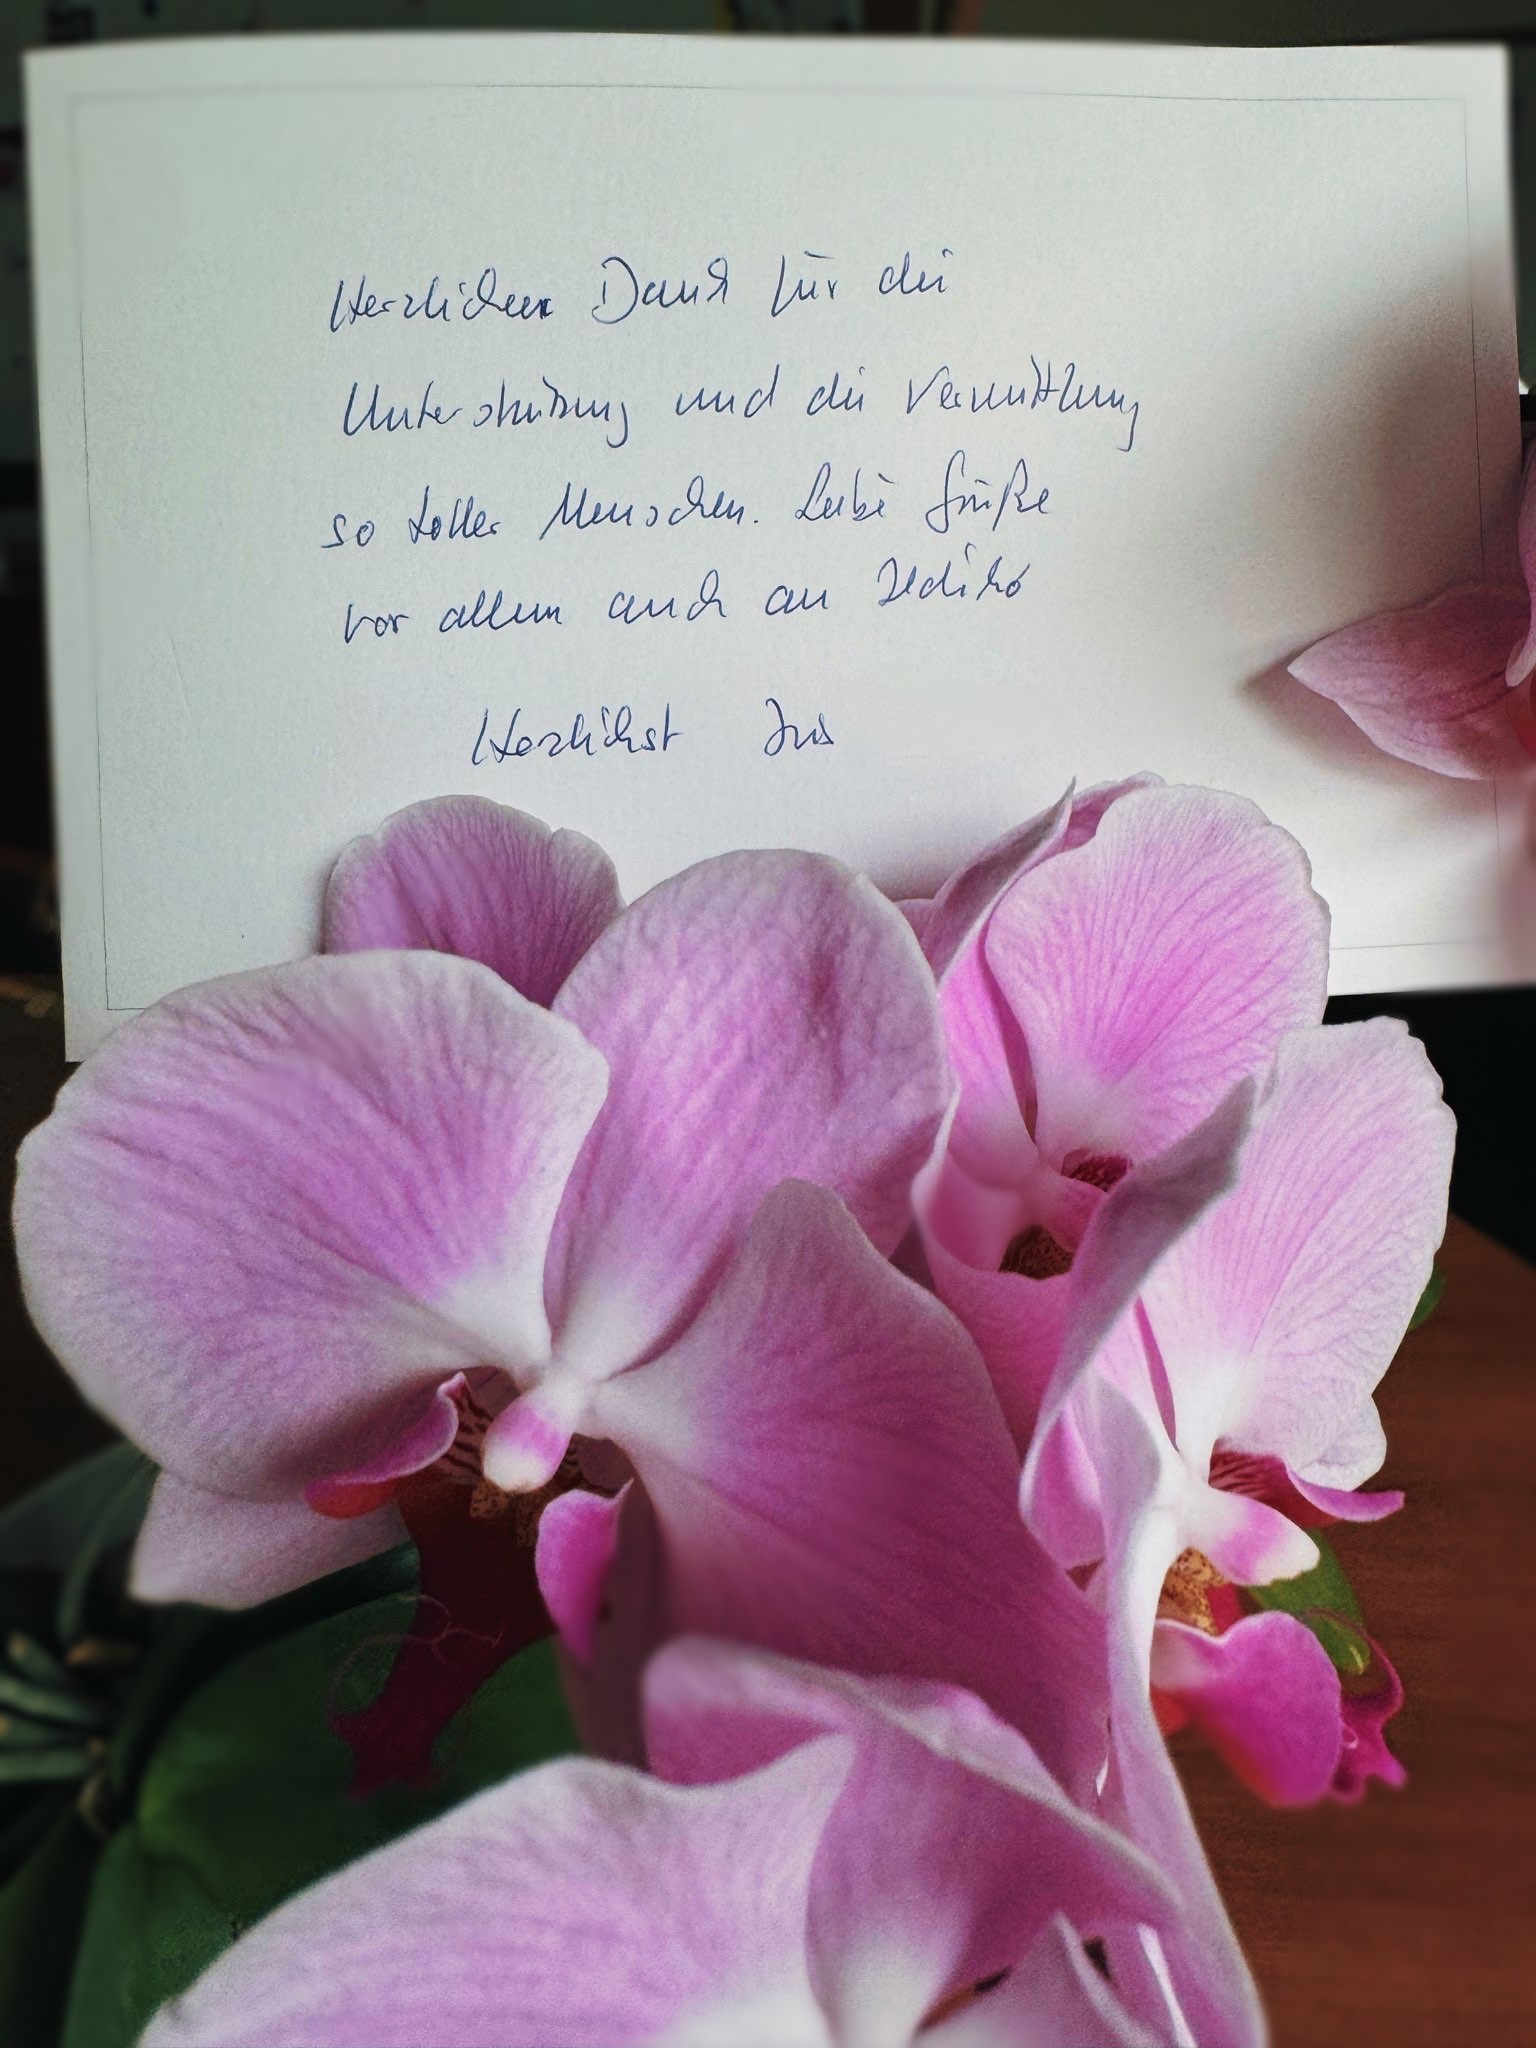 Herzlichen Dank für die
Unterstützung und die Vermittlung
so toller Menschen. Liebe Grüße
vor allem auch an Ildikó
Herzlichst